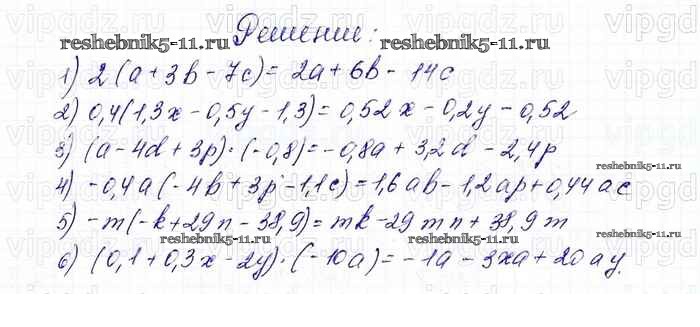 Решение:
reshebnik5-11.ru reshebnik5-11.ru
1) 2(a+3b-7c)=2a+6b-14c
2) 0,4(1,3x-0,5y-1,3)=0,52x-0,2y-0,52
3) (a-4d+3p)·(-0,8)=-0,8a+3,2d-2,4p
reshebnik5-11.ru
4) -0,4a(-4b+3p-1,1c)=1,6ab-1,2ap+0,44ac
5) -m(-k+29n-38,9)=mk-29mn+38,9m
reshebnik5-11.ru reshebnik5-11.ru
6) (0,1+0,3x-2y)·(-10a)=-1a-3xa+20ay.
reshebnik5-11.ru